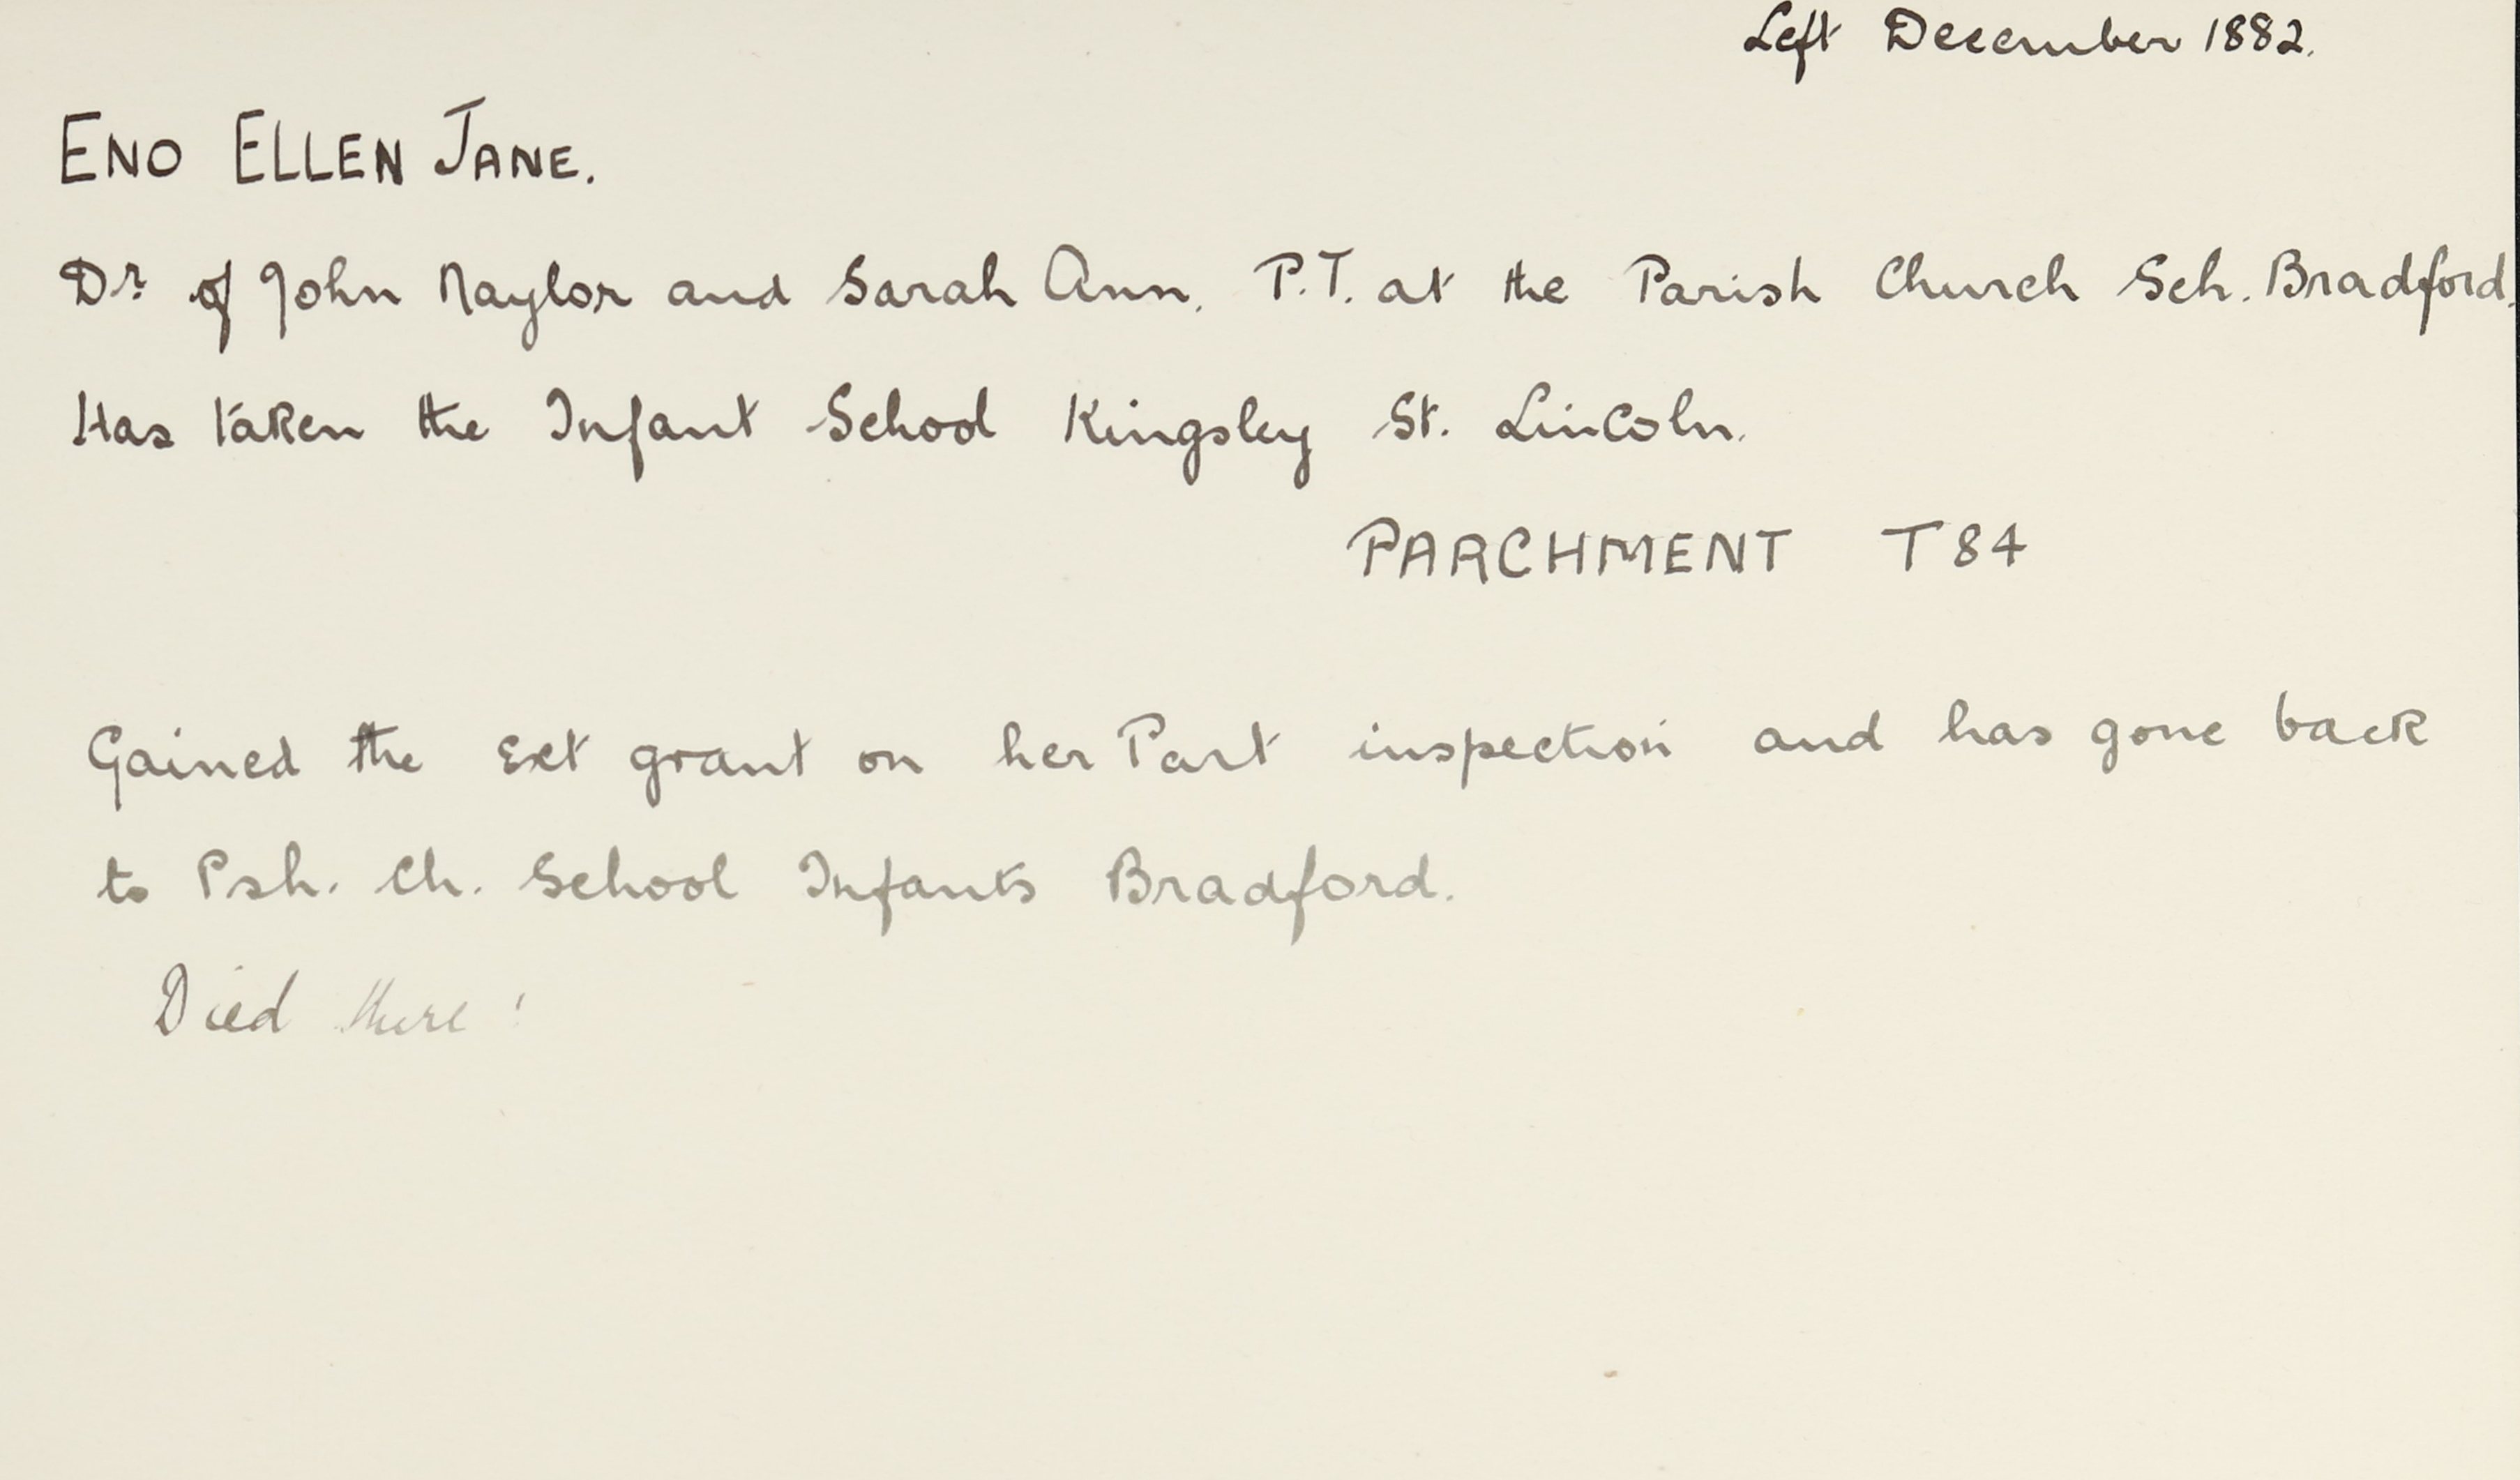 Left December 1882.
ENO ELLEN JANE.
Dr of John Naylor and Sarah Ann. P.T. at the Parish Church Sch. Bradford.
Has taken the Infant School Kingsley St. Lincoln.
PARCHMENT T84
Gained the Ext grant on her Part inspection and has gone back
to Psh. Ch. School Infants Bradford.
Died there!